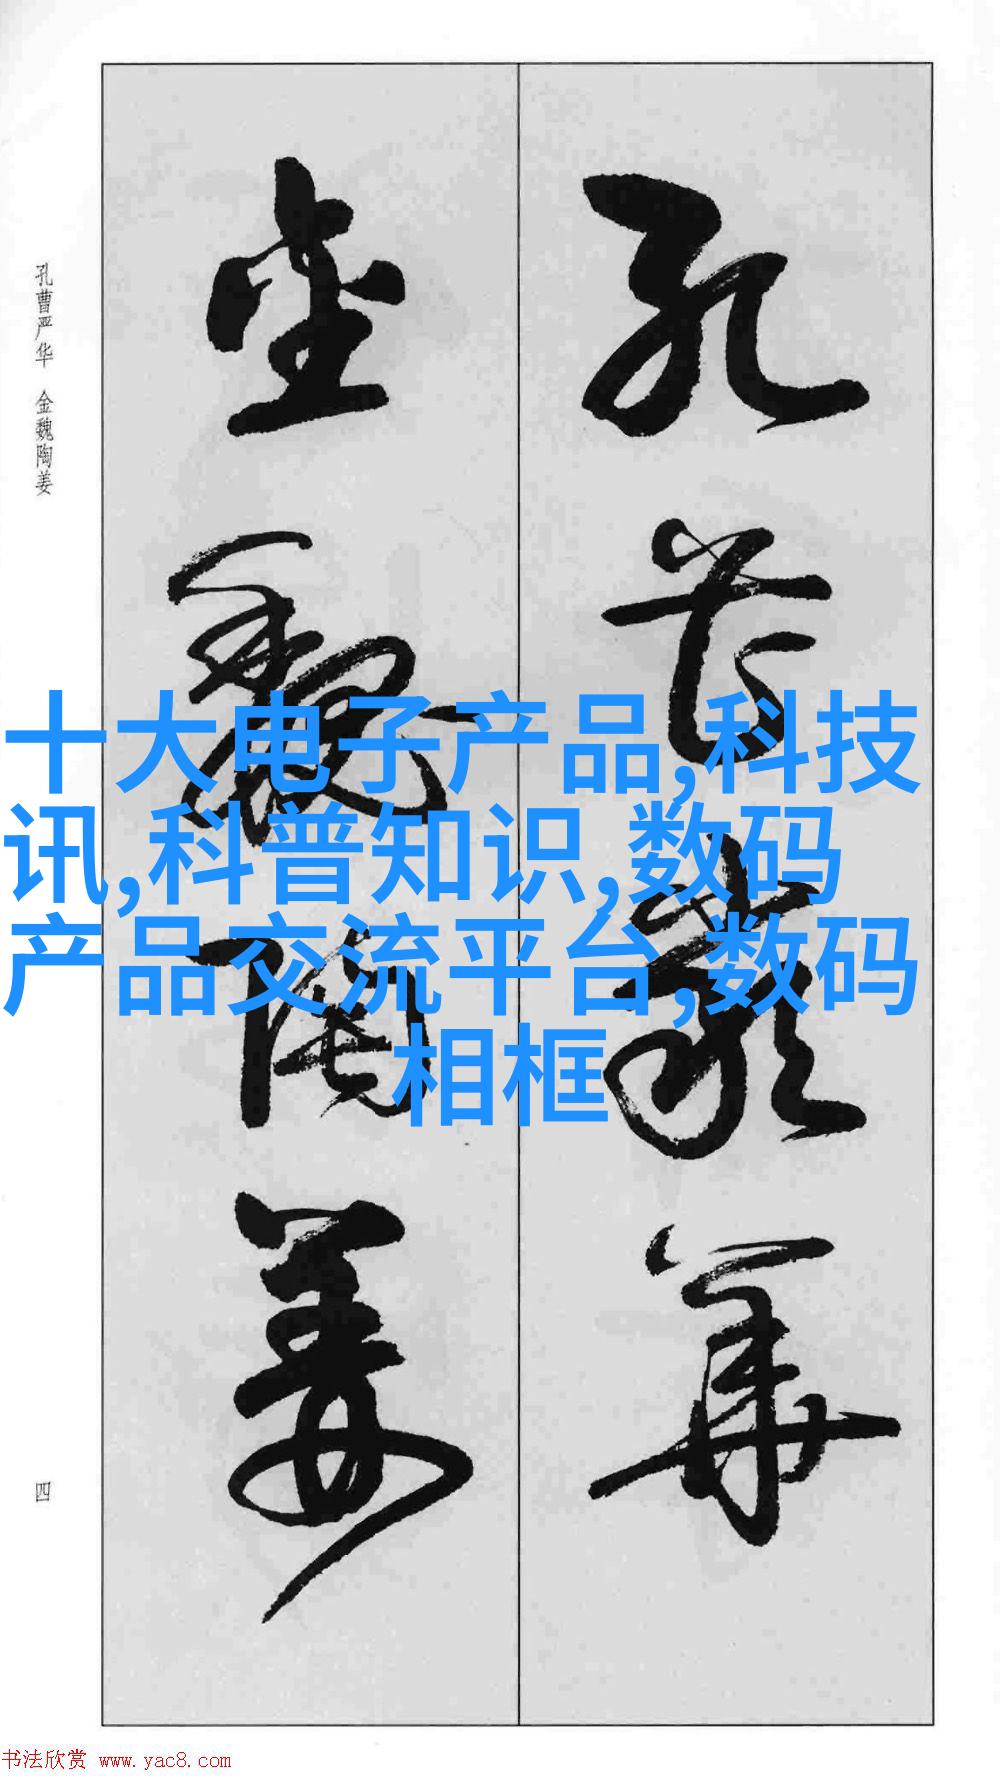 孔曹严华
金魏陶姜
孔曹严华 金魏陶姜
四
十大电子产品,科技
讯,科普知识,数码
产品交流平台,数码
相框
书法欣赏 www.yac8.com